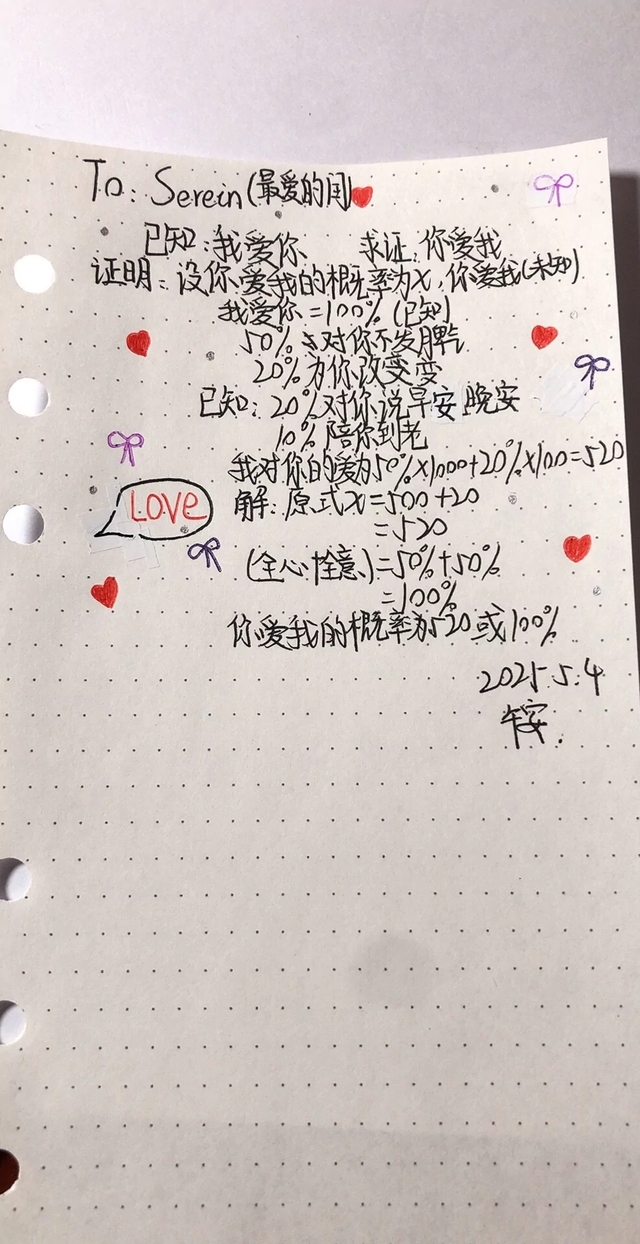 To: Serein(最爱的闰)
已知:我爱你 求证:你爱我
证明:设你爱我的概率为x,你爱我(未知)
我爱你=100%(已知)
50%对你不发脾气
20%为你改变
已知:20%对你说早安,晚安
10%陪你到老
我对你的爱为50%×1000+20%×100=520
解:原式x=500+20
=520
LOVE
(全心全意)=50%+50%
=100%
你爱我的概率为520或100%
2025.5.4